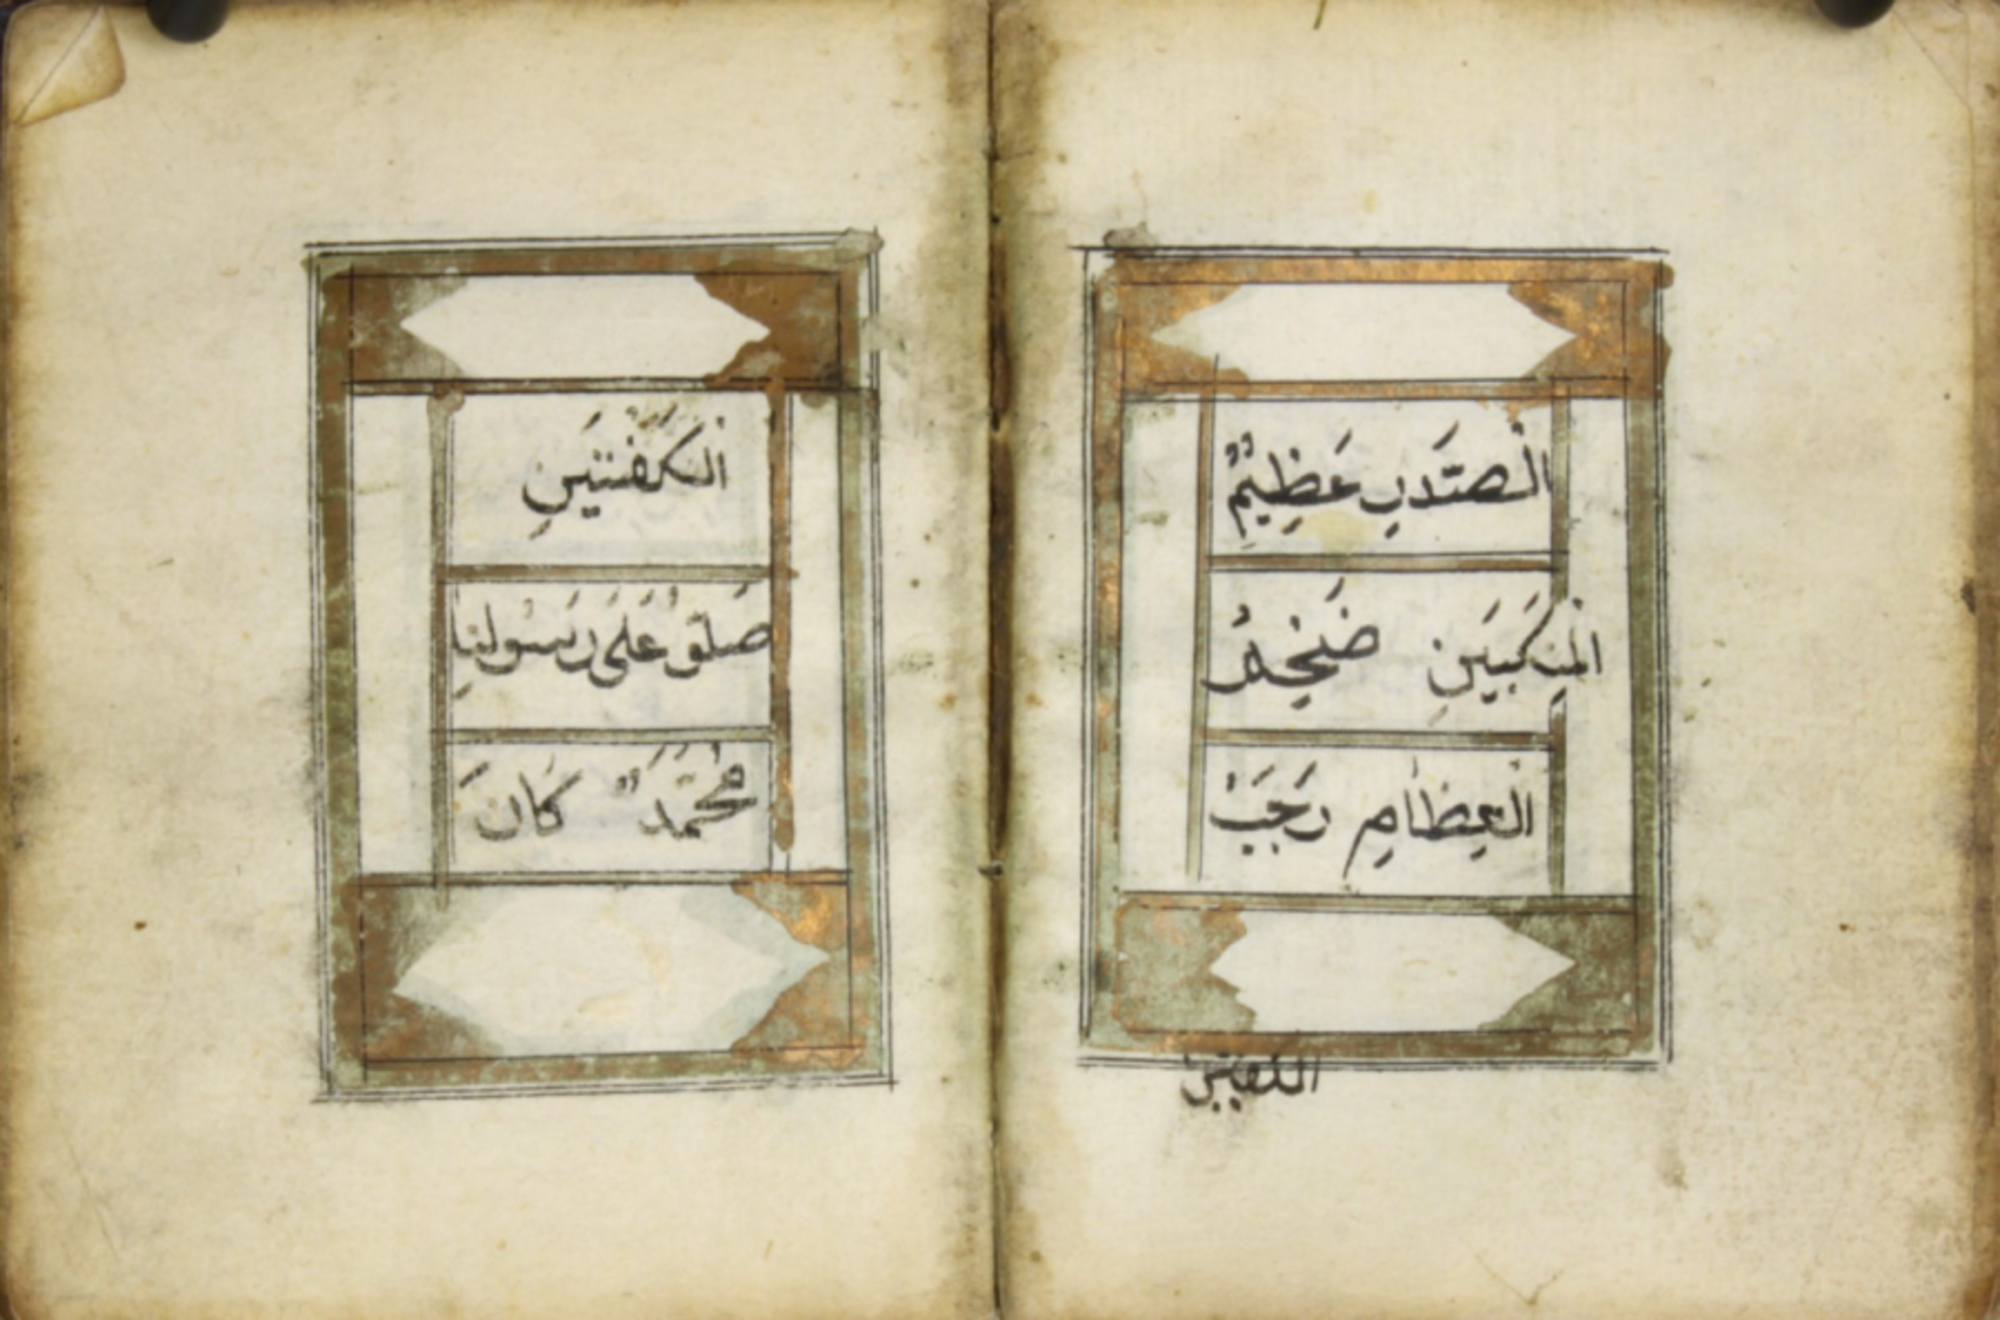 الْصَّدرِ عَظِيمُ
الْمَنِكَبَيَنِ ضَخِمُ
الْعِظَامِ رَحَبَ
الكفين
الْكَفَّيَنِ
صَلُّوْ عَلَى رَسُولِنَا
مُحَمَّدٌ كَانَ